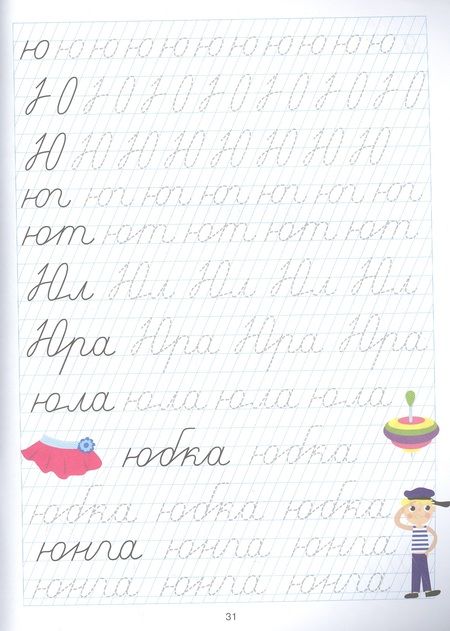 ю ю ю ю ю ю ю ю ю ю ю
Ю Ю Ю Ю Ю Ю Ю
Ю Ю Ю Ю Ю Ю Ю Ю Ю
юг юг юг юг юг юг юг
ют ют ют ют ют ют
Юл Юл Юл Юл Юл
Юра Юра Юра Юра
юла юла юла юла
юбка юбка
юбка юбка юбка
юнга юнга юнга
юнга юнга юнга
31